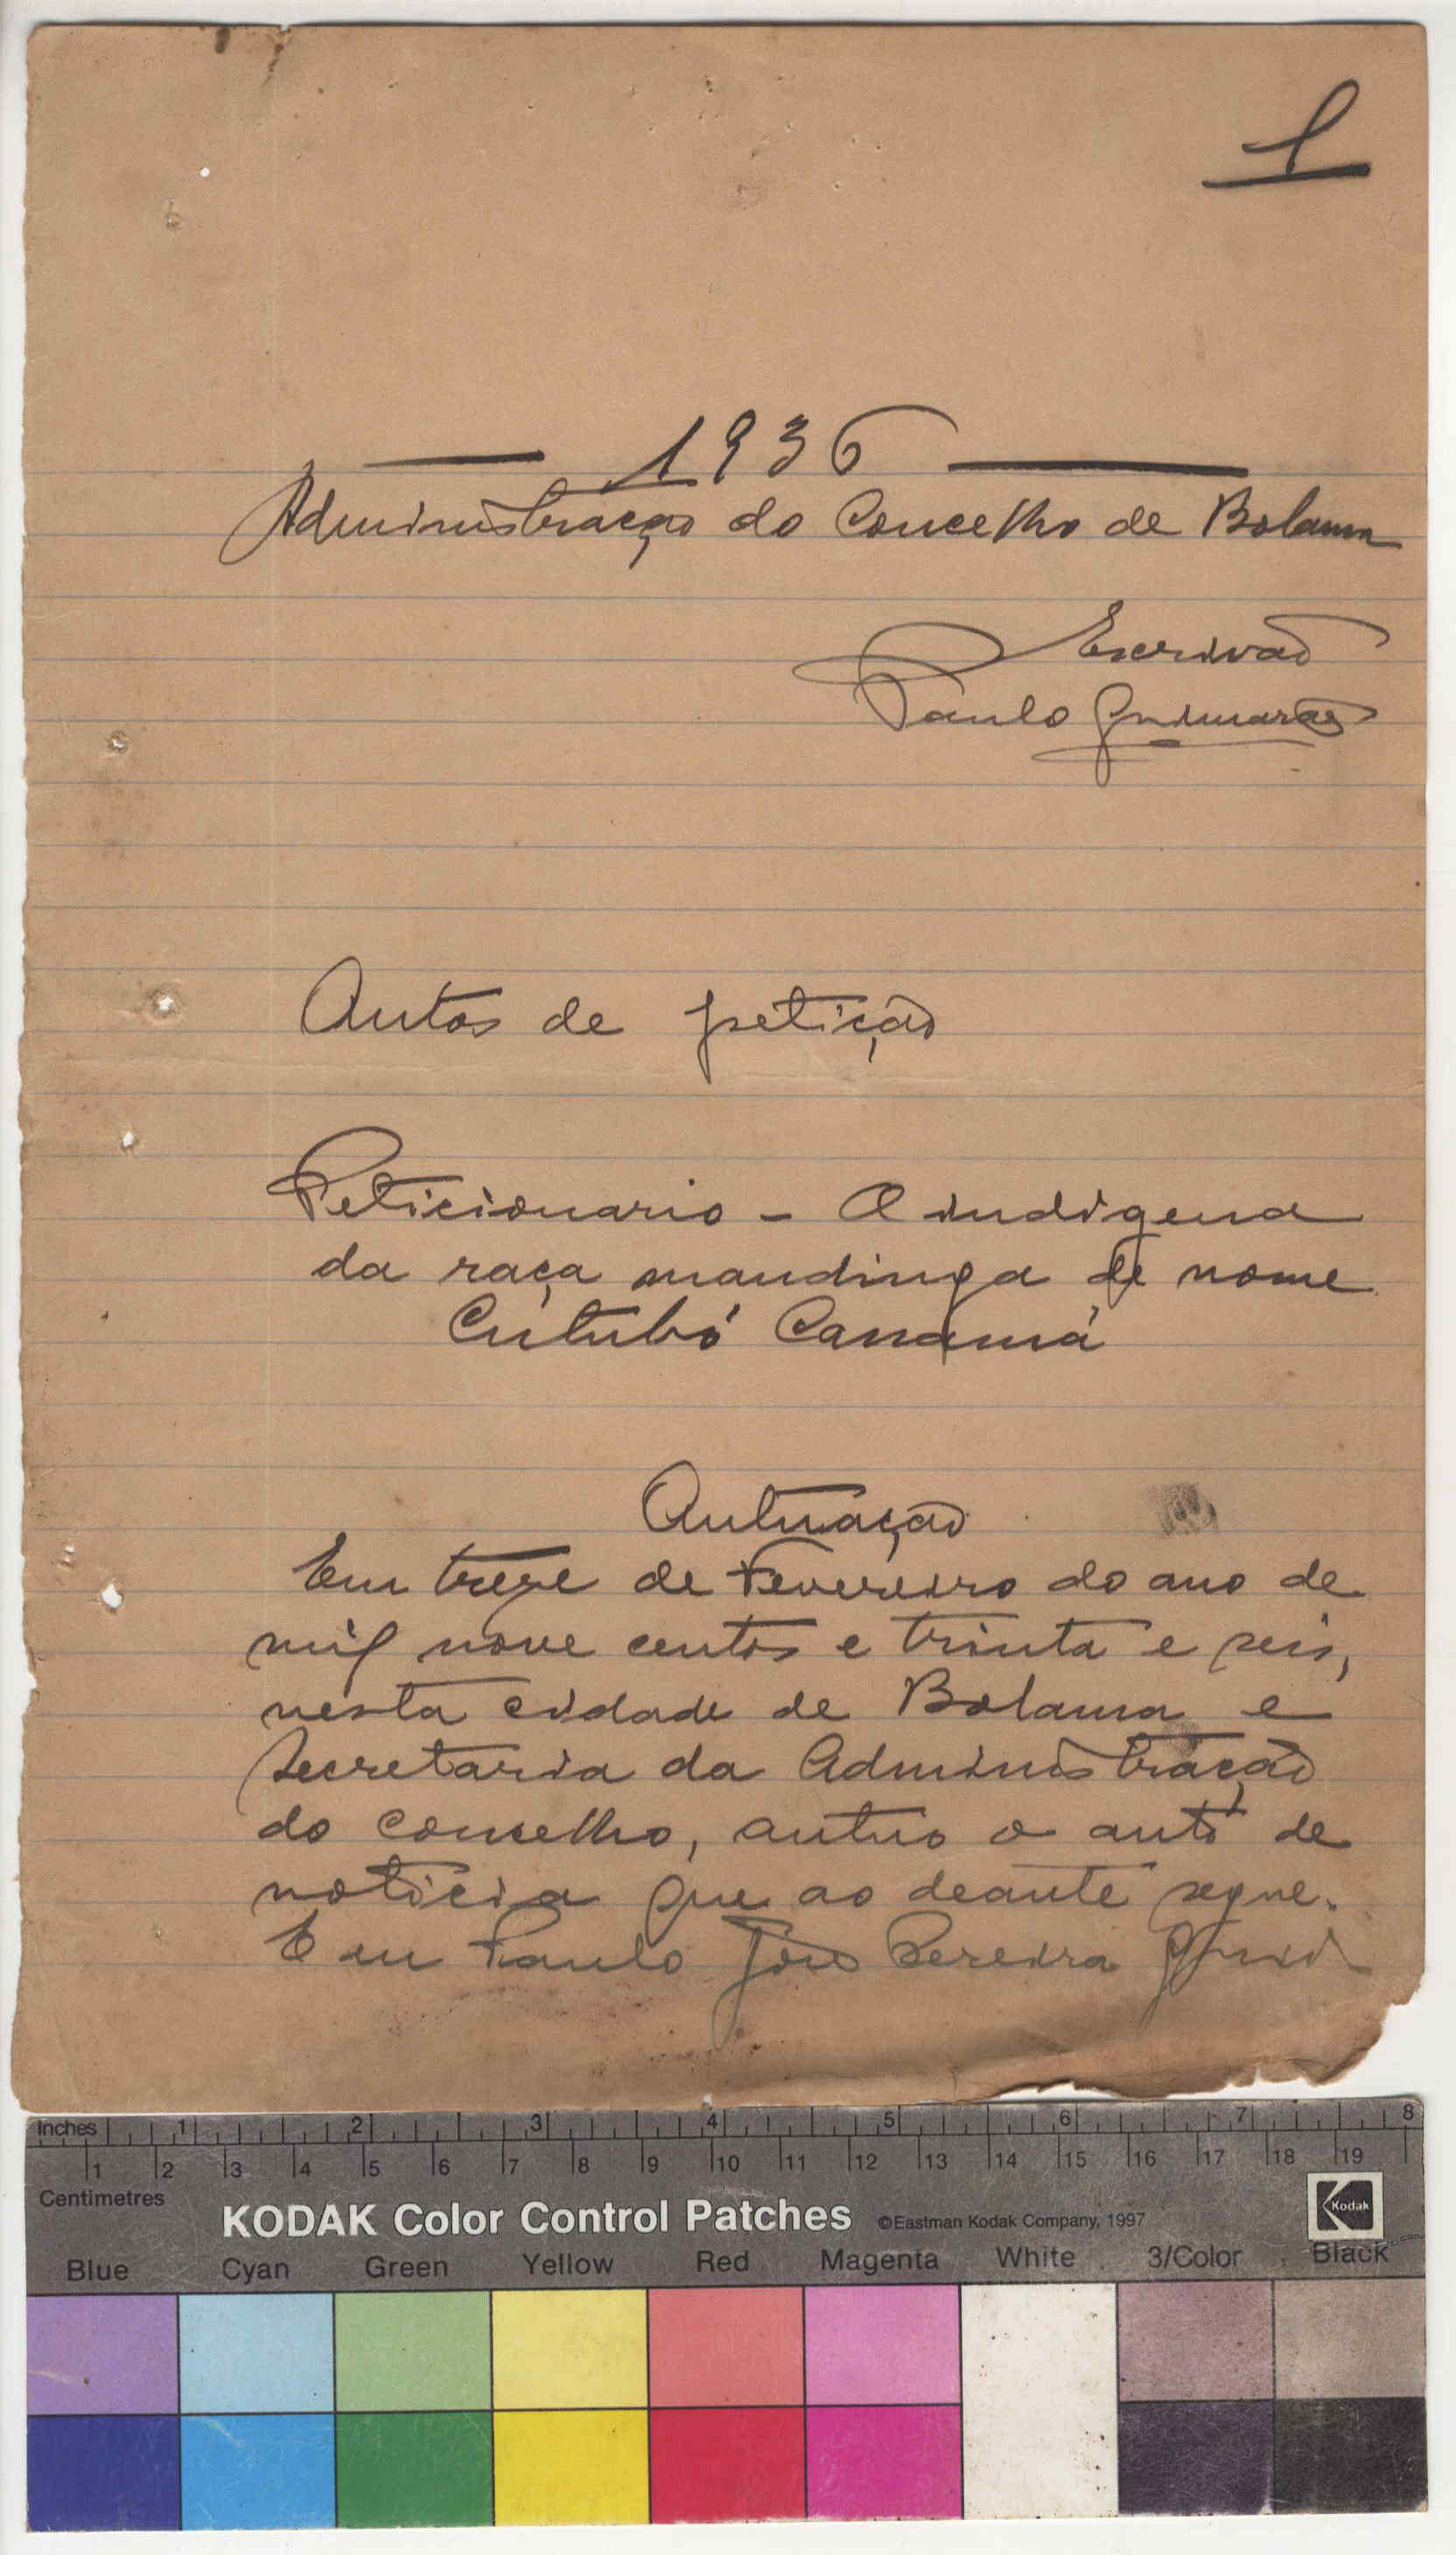 1
1936
Administração do Concelho de Bolama
Escrivão
Paulo Guimarães
Autos de petição
Peticionario - O indigena
da raça mandinga de nome
Cutubó Camamá
Autuação
Em treze de Fevereiro do ano de
mil nove centos e trinta e seis,
nesta cidade de Bolama e
Secretaria da Administração
do conselho, autuo o auto de
noticia que ao deante segue.
E eu Paulo José Pereira
Inches 1 2 3 4 5 6 7 8
1 2 3 4 5 6 7 8 9 10 11 12 13 14 15 16 17 18 19
Centimetres
KODAK Color Control Patches ©Eastman Kodak Company, 1997 Kodak
Blue Cyan Green Yellow Red Magenta White 3/Color Black